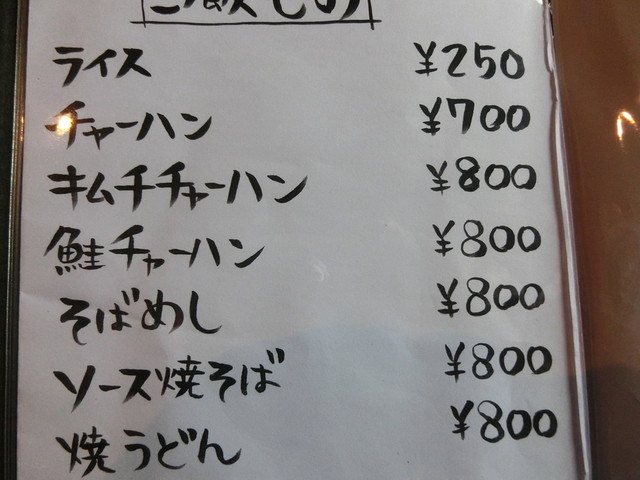 ライス ¥250
チャーハン ¥700
キムチチャーハン ¥800
鮭チャーハン ¥800
そばめし ¥800
ソース焼そば ¥800
焼うどん ¥800